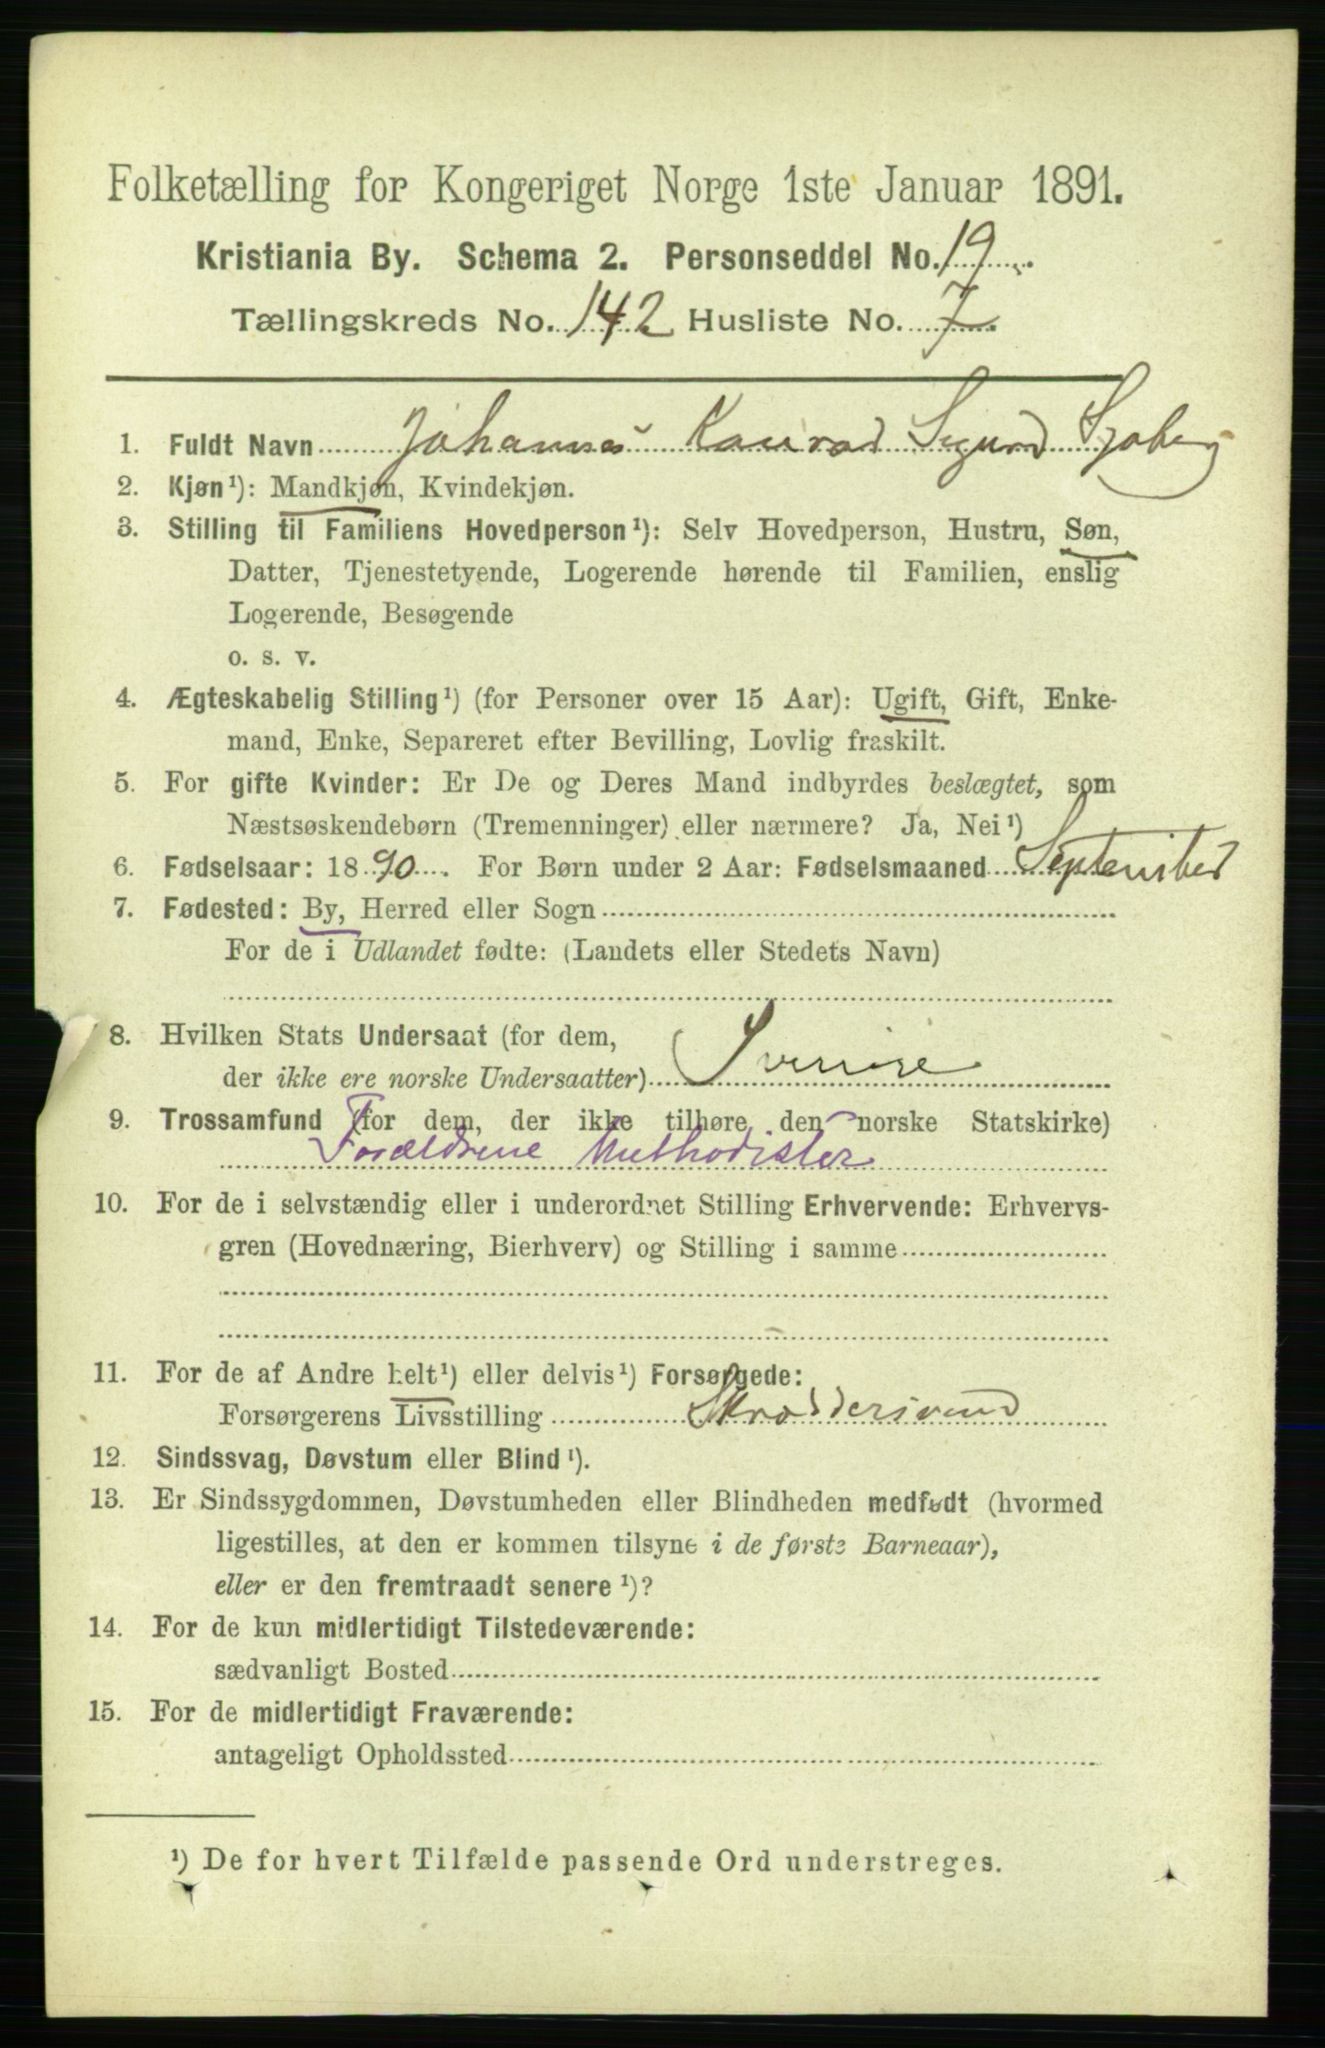 Folketælling for Kongeriget Norge 1ste Januar 1891.
Kristiania By. Schema 2. Personseddel No. 19
Tællingskreds No. 142 Husliste No. 7
1. Fuldt Navn Johannes Konrad Sigurd Sjøberg
2. Kjøn¹): Mandkjøn, Kvindekjøn.
3. Stilling til Familiens Hovedperson¹): Selv Hovedperson, Hustru, Søn,
Datter, Tjenestetyende, Logerende hørende til Familien, enslig
Logerende, Besøgende
o. s. v.
4. Ægteskabelig Stilling¹) (for Personer over 15 Aar): Ugift, Gift, Enke-
mand, Enke, Separeret efter Bevilling, Lovlig fraskilt.
5. For gifte Kvinder: Er De og Deres Mand indbyrdes beslægtet, som
Næstsøskendebørn (Tremenninger) eller nærmere? Ja, Nei¹)
6. Fødselsaar: 1890. For Børn under 2 Aar: Fødselsmaaned September
7. Fødested: By, Herred eller Sogn
For de i Udlandet fødte: (Landets eller Stedets Navn)
8. Hvilken Stats Undersaat (for dem,
der ikke ere norske Undersaatter) Sverige
9. Trossamfund (for dem, der ikke tilhøre den norske Statskirke)
Forældrene Methodister
10. For de i selvstændig eller i underordnet Stilling Erhvervende: Erhvervs-
gren (Hovednæring, Bierhverv) og Stilling i samme
11. For de af Andre helt¹) eller delvis¹) Forsørgede:
Forsørgerens Livsstilling Skreddersvend
12. Sindssvag, Døvstum eller Blind¹).
13. Er Sindssygdommen, Døvstumheden eller Blindheden medfødt (hvormed
ligestilles, at den er kommen tilsyne i de første Barneaar),
eller er den fremtraadt senere¹)?
14. For de kun midlertidigt Tilstedeværende:
sædvanligt Bosted
15. For de midlertidigt Fraværende:
antageligt Opholdssted
¹) De for hvert Tilfælde passende Ord understreges.